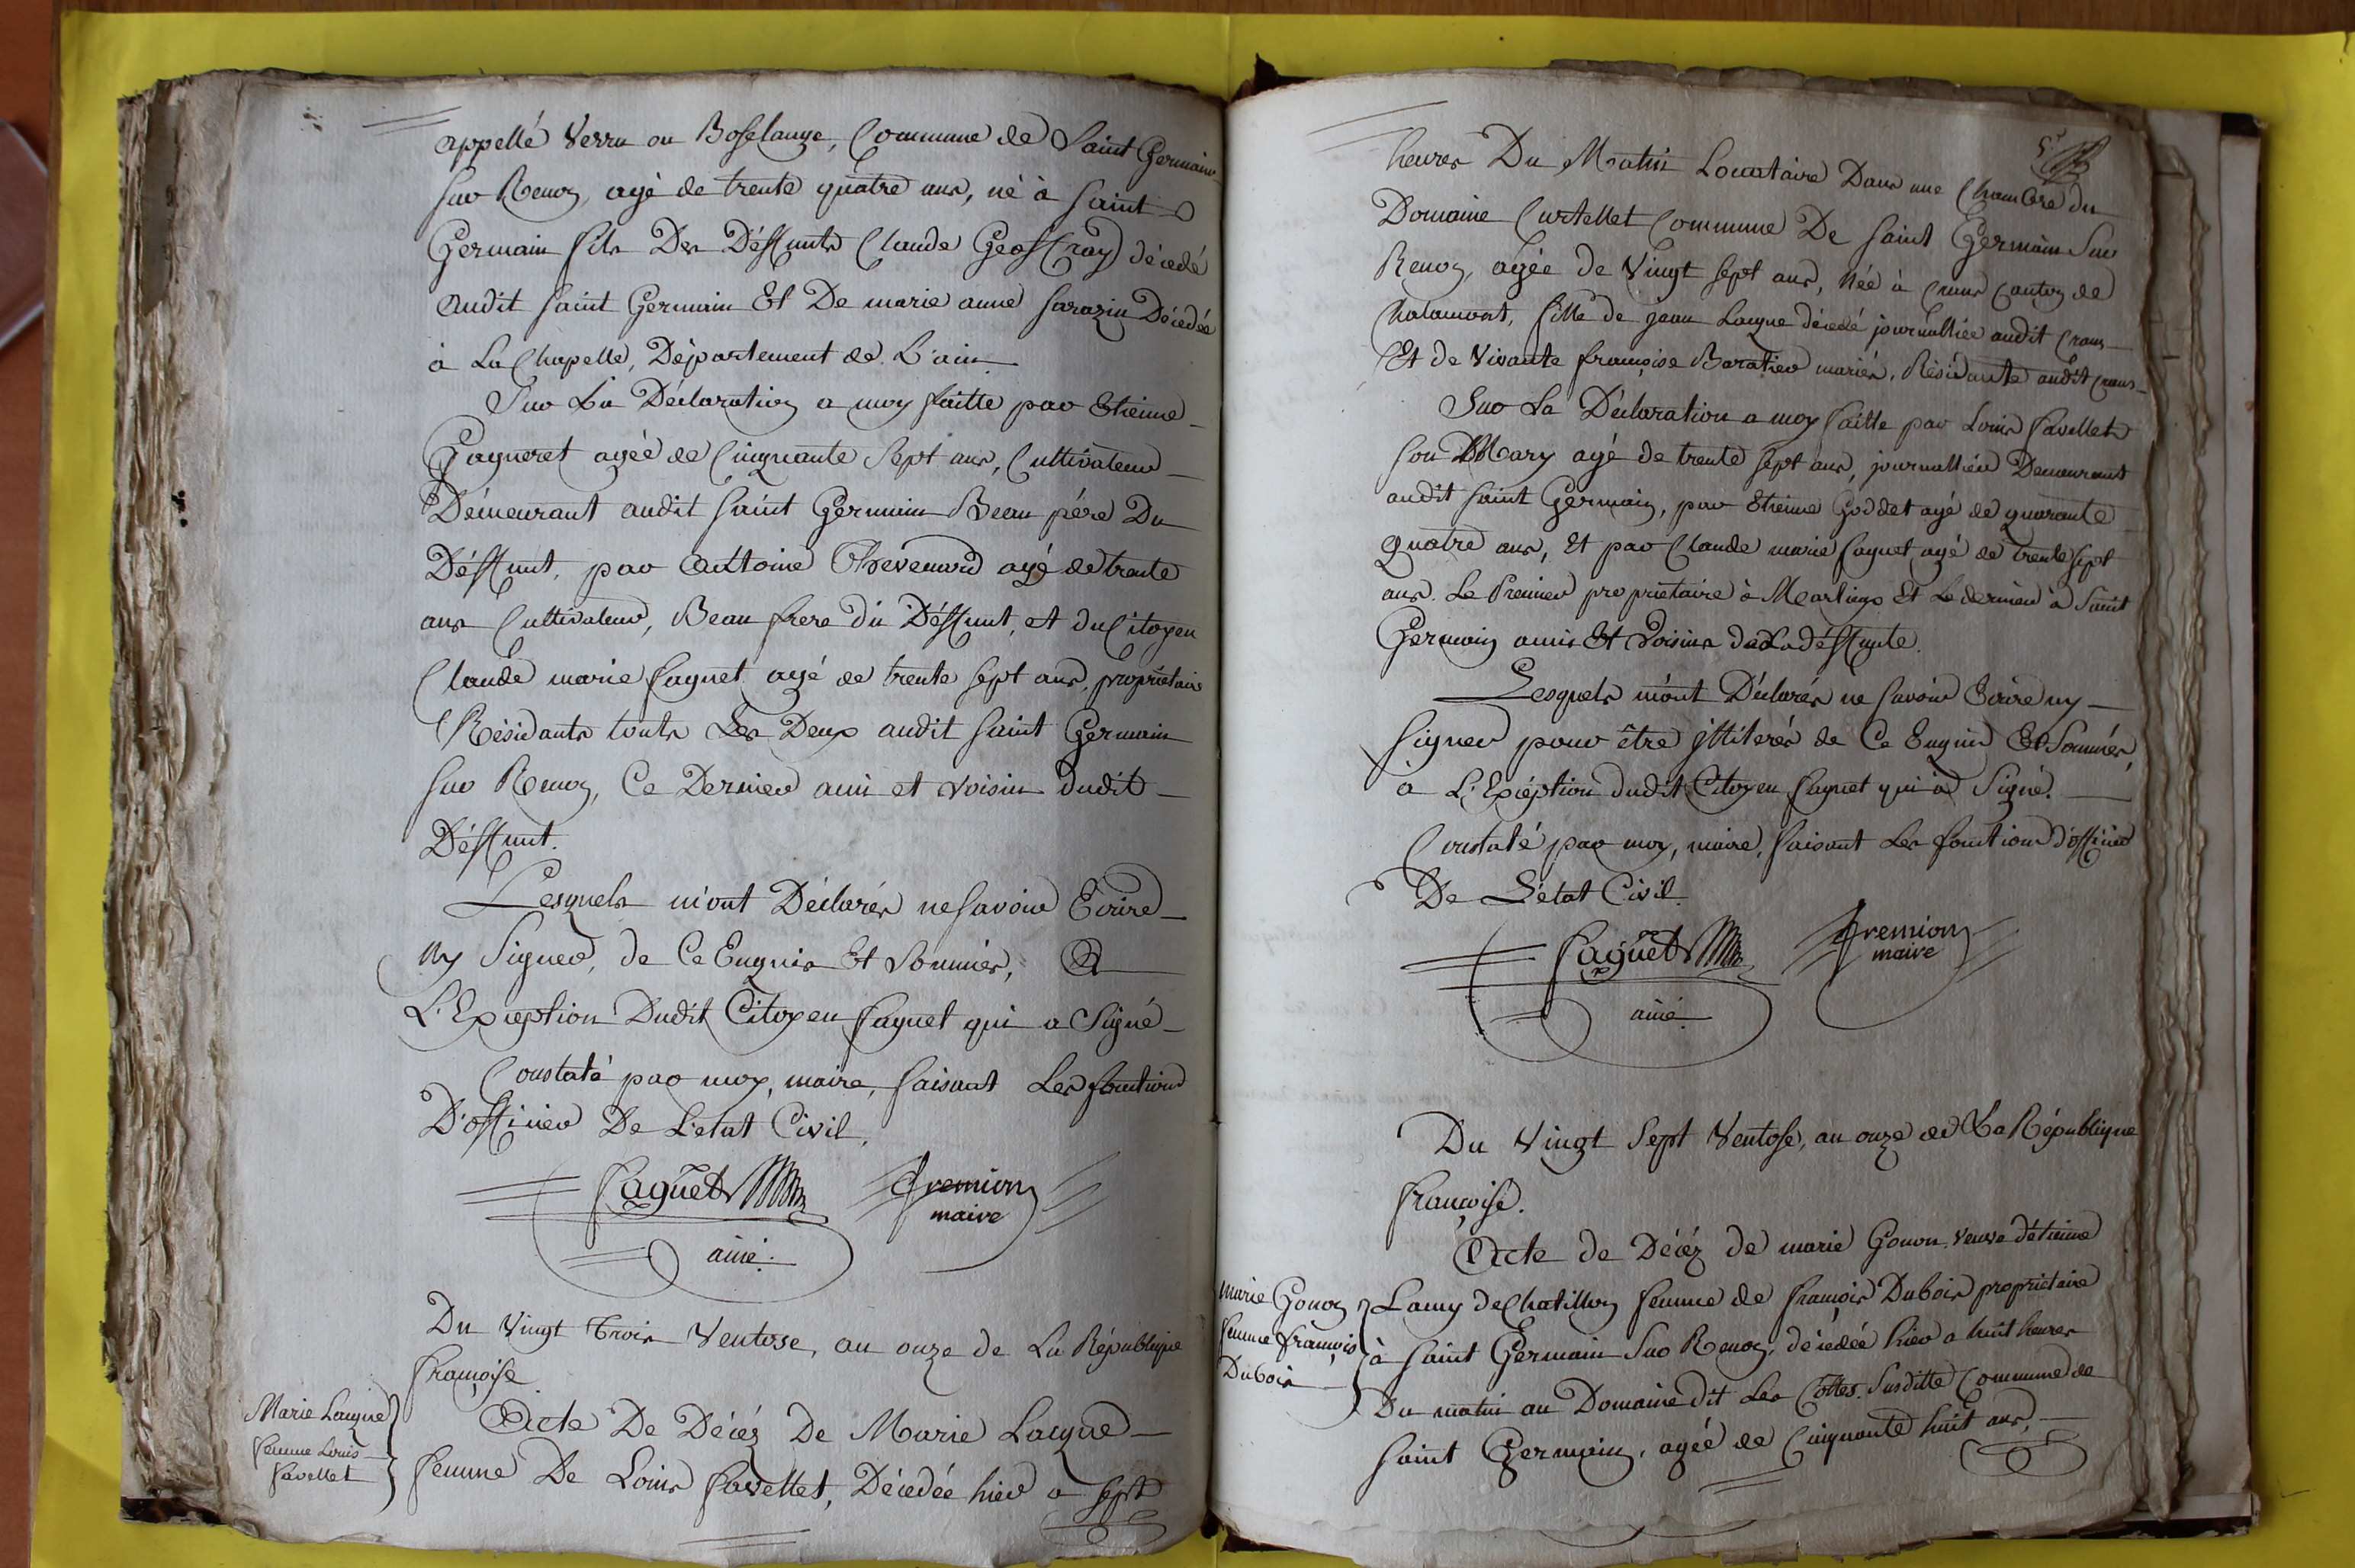 appellé Verru ou Boselange, Commune de Saint Germain
sur Renon, agé de trente quatre ans, né à Saint
Germain fils Des Déffunts Claude Geoffray décedé
audit Saint Germain Et De marie anne Sarazin Décedée
à La Chapelle, Département de L'ain.
Sur La Déclaration a moy faitte par Etienne
Gagneret agée de Cinquante Sept ans, Cultivateur
Démeurant audit Saint Germain Beau pére Du
Déffunt, par Anttoine Thevenard agé de trente
ans Cultivateur, Beau frere du Déffunt, et du Citoyen
Claude marie faguet agé de trente sept ans, proprietaire
Résidants touts Les Deux audit Saint Germain
sur Renon, Ce Dernier ami et voisin dudit
Déffunt.
Lesquels m'ont Déclarés ne Savoir Ecrire
ny Signer, de Ce Enquis Et Sommés, A
L'Exception Dudit Citoyen faguet qui a Signé
Constaté par moy, maire, faisant Les fonctions
D'officier De L'etat Civil.
faguet
ainé
Gremion
maire
Du Vingt Trois Ventose, an onze de La République
françoise
Marie Laigne
femme Louis
favellet
Acte De Décéz De Marie Laigne
femme De Louis favellet, Décedée hier a sept
heures Du Matin Locataire Dans une Chambre du
Domaine Curtellet Commune De Saint Germain Sur
Renon, agée de Vingt sept ans, Née à Crans Canton de
Chalamont, fille de jean Laigne décedé journallier audit Crans
Et de Vivante françoise Baratier mariés, Résidante audit Crans
Sur La Déclaration a moy faitte par Louis favellet
son Mary agé de trente sept ans, journallier Demeurant
audit Saint Germain, par Etienne Goddet agé de quarante
quatre ans, Et par Claude marie faguet agé de trente sept
ans. Le Premier proprietaire à Marlieux Et Le dernier à Saint
Germain amis Et Voisins de La déffunte.
Lesquels m'ont Déclarés ne Savoir Ecrire ny
Signer pour être jlliterés de Ce Enquis Et Sommés,
à L'Exception dudit Citoyen faguet qui a Signé.
Constaté par moy, maire, faisant Les fonctions d'officier
De L'état Civil.
faguet
ainé
Gremion
maire
Du Vingt Sept Ventose, an onze de La République
françoise.
marie Gonon
femme françois
Dubois
Acte de Décéz de marie Gonon, veuve d'étienne
Lamy de Chatillon femme de françois Dubois proprietaire
à Saint Germain Sur Renon, décedée hier a huit heures
Du matin au Domaine dit Les Cottes. Susditte Commune de
Saint Germain, agée de Cinquante huit ans,